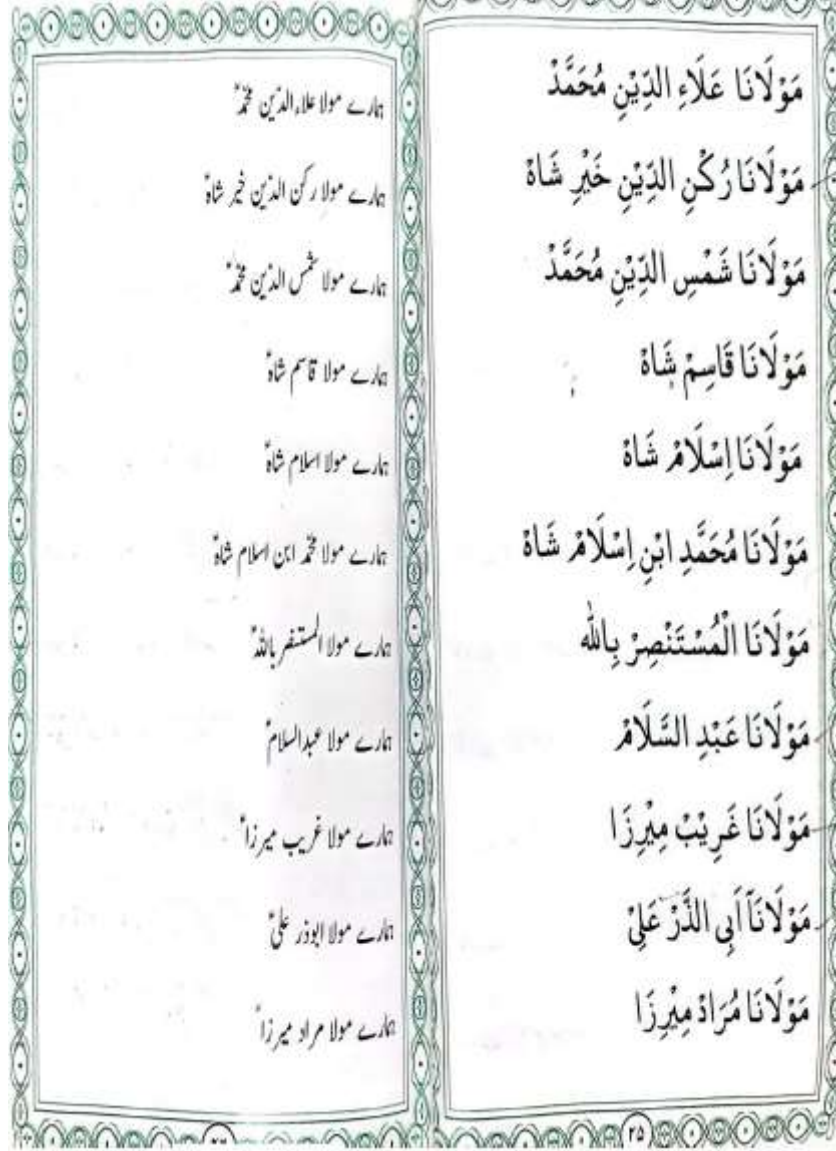 مَوْلَانَا عَلَاءِ الدِّيْنِ مُحَمَّدْ
مَوْلَانَا رُكْنِ الدِّيْنِ خَيْرِ شَاهْ
مَوْلَانَا شَمْسِ الدِّيْنِ مُحَمَّدْ
مَوْلَانَا قَاسِمْ شَاهْ
مَوْلَانَا اِسْلَامْ شَاهْ
مَوْلَانَا مُحَمَّدِ ابْنِ اِسْلَامْ شَاهْ
مَوْلَانَا الْمُسْتَنْصِرْ بِالله
مَوْلَانَا عَبْدِ السَّلَامْ
مَوْلَانَا غَرِيْبْ مِيْرِزَا
مَوْلَانَآ اَبِی الذَّرْ عَلِیْ
مَوْلَانَا مُرَادْ مِيْرِزَا
۲۵
ہمارے مولا علاء الدّین محمّدؑ
ہمارے مولا رکن الدّین خیر شاہؑ
ہمارے مولا شمس الدّین محمّدؑ
ہمارے مولا قاسم شاہؑ
ہمارے مولا اسلام شاہؑ
ہمارے مولا محمّد ابن اسلام شاہؑ
ہمارے مولا المستنصر باللہؑ
ہمارے مولا عبدالسلامؑ
ہمارے مولا غریب میرزاؑ
ہمارے مولا ابوذر علیؑ
ہمارے مولا مراد میرزاؑ